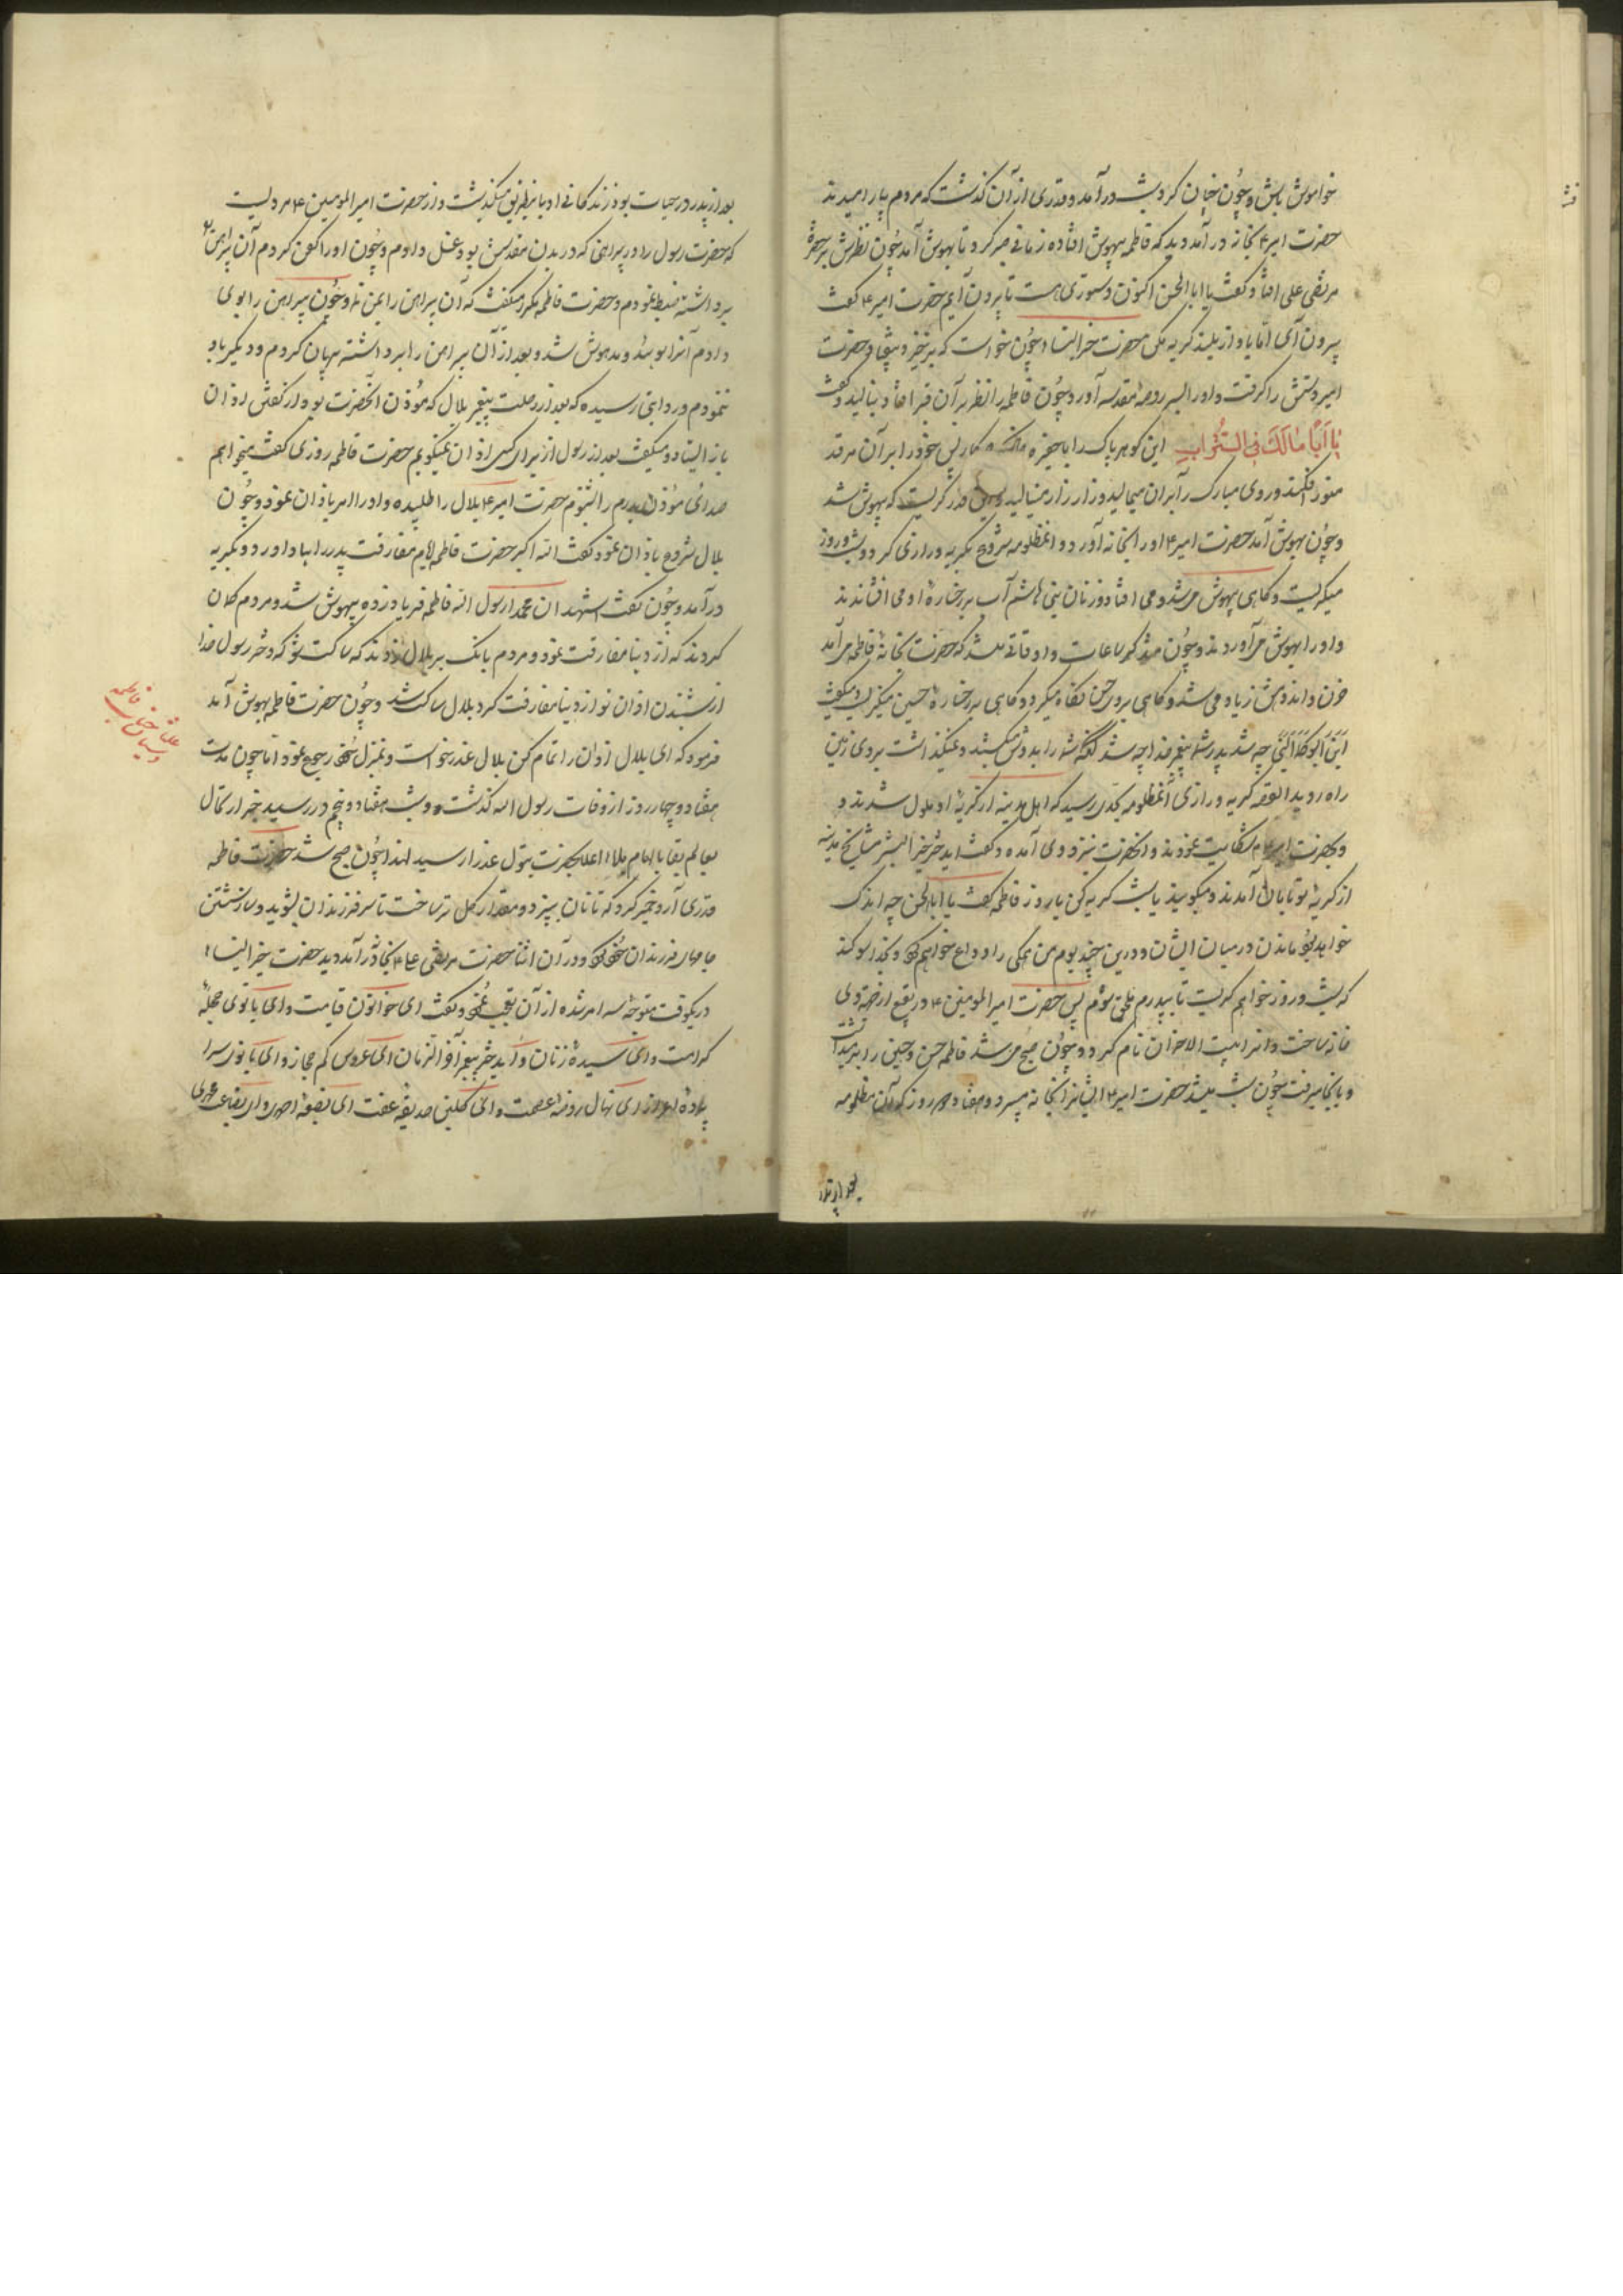 خواموش باش و چون چنان کرد و شب درآمد و قدری از آن گذشت که مردم بیارامیدند
حضرت امیر ۴ بخانه درآمد دید که فاطمه بیهوش افتاده زمانی صبر کرد تا بهوش آمد چون نظرش بر چهرهٔ
مرتضی علی افتاد گفت یا ابا الحسن اکنون دستوری هست تا بیرون آیم حضرت امیر ۴ گفت
بیرون آی اما باواز بلند گریه مکن حضرت خیر النسا چون خواست که برخیزد بیفتاد حضرت
امیر دستش را گرفت و او را بسر روضهٔ مقدسه آورد و چون فاطمه را نظر بر آن قبر افتاد بنالید و گفت
یا اَبَا مالَكَ فی التُّراب این گوهر پاک را با چنین خاک چکار پس خود را بر آن مرقد
منور افکند و روی مبارک را بر آن میمالید و زار زار مینالید و چندان گریست که بیهوش شد
و چون بهوش آمد حضرت امیر ۴ او را بخانه آورد و آن مظلومه شروع بگریه و زاری کرد و شب و روز
میگریست و گاهی بیهوش میشد و می افتاد و زنان بنی هاشم آب بر رخسارهٔ او می افشاندند
و او را بهوش می آوردند و چون ساعات و اوقاتی میشد که حضرت بخانهٔ فاطمه می آمد
حزن و اندوهش زیاد می شد و گاهی بروی حسن نگاه میکرد و گاهی بر رخسارهٔ حسین میگریست و میگفت
این ابوکما النبی چه شد پدر شما پیغمبر خدا چه شد آنکه شما را بدوش میکشید و نمیگذاشت بروی زمین
راه روید القصه گریه و زاری آن مظلومه بحدی رسید که اهل مدینه از گریهٔ او ملول شدند و
بحضرت امیر ۴ شکایت نمودند و آنحضرت بنزد وی آمده و گفت ای دختر خیر البشر مشایخ مدینه
از گریهٔ تو تابان آمدند و میگویند یا شب گریه کن یا روز فاطمه گفت یا ابا الحسن چه اندک
خواهد بود ماندن در میان ایشان و درین چند یوم من همگی را وداع خواهم کرد و بخدا سوگند
که شب و روز خواهم گریست تا بپدرم ملحق شوم پس حضرت امیر المومنین ۴ در بقیع از جهة وی
خانه ساخت و آنرا بیت الاحزان نام کرد و چون صبح می شد فاطمه حسن و حسین را برمیداشت
و بانجا میرفت چون شب میشد حضرت امیر ۴ ایشانرا بخانه میبرد و هفتاد و روز که آن مظلومه
بعد از پدر
بعد از پدر در حیات بود زندگانی او باین طریق میگذشت و از حضرت امیر المومنین ۴ مرویست
که حضرت رسول را در پیراهنی که در بدن مقدسش بود غسل دادم و چون او را کفن کردم آن پیراهن را
برداشته ضبط نمودم و حضرت فاطمه مکرر میگفت که آن پیراهن را بمن نما و چون پیراهن را بوی
دادم آنرا بوئید و مدهوش شد و بعد از آن پیراهن را برداشته پنهان کردم و دیگر باو
ننمودم و روایتی رسیده که بعد از رحلت پیغمبر بلال که مؤذن آنحضرت بود از گفتن اذان
باز ایستاد و میگفت بعد از رسول از برای کسی اذان نمیگویم حضرت فاطمه روزی گفت میخواهم
صدای مؤذن پدرم را بشنوم حضرت امیر ۴ بلال را طلبیده و او را امر باذان نمود و چون
بلال شروع باذان نمود و گفت الله اکبر حضرت فاطمه ایام مفارقت پدر را بیاد آورد و بگریه
درآمد و چون گفت اشهد ان محمدا رسول الله فاطمه فریاد زده بیهوش شد و مردم گمان
کردند که از دنیا مفارقت نمود و مردم بانگ بر بلال زدند که ساکت شو که دختر رسول خدا
از شنیدن اذان تو از دنیا مفارقت کرد بلال ساکت شد و چون حضرت فاطمه بهوش آمد
فرمود که ای بلال اذان را تمام کن بلال عذر خواست و بمنزل خود رجوع نمود اما چون مدت
هفتاد و چهار روز از وفات رسول الله گذشت و شب هفتاد و پنجم در رسید خبر ارتحال
بعالم بقا بالهام ملاء اعلا بحضرت بتول عذرا رسید لهذا چون صبح شد حضرت فاطمه
قدری آرد خمیر کرد که تا نان بپزد و مقدار گل تر ساخت تا سر فرزندان بشوید و باز شستن
جامهای فرزندان و در آن اثنا حضرت مرتضی علی ۴ بخانه درآمد دید حضرت خیر النساء
در یکوقت متوجه سه امر شده از آن تعجب نمود و گفت ای خواتون قیامت و ای بانوی حجلهٔ
کرامت و ای سیدهٔ زنان و ای دختر پیغمبر آخر الزمان ای عروس کم جهاز و ای بانوی سرا
پردهٔ ای نهال روضهٔ عصمت و ای گلبن حدیقهٔ عفت ای بضعهٔ احمدی و ای بضاعت محمدی
فاطمه